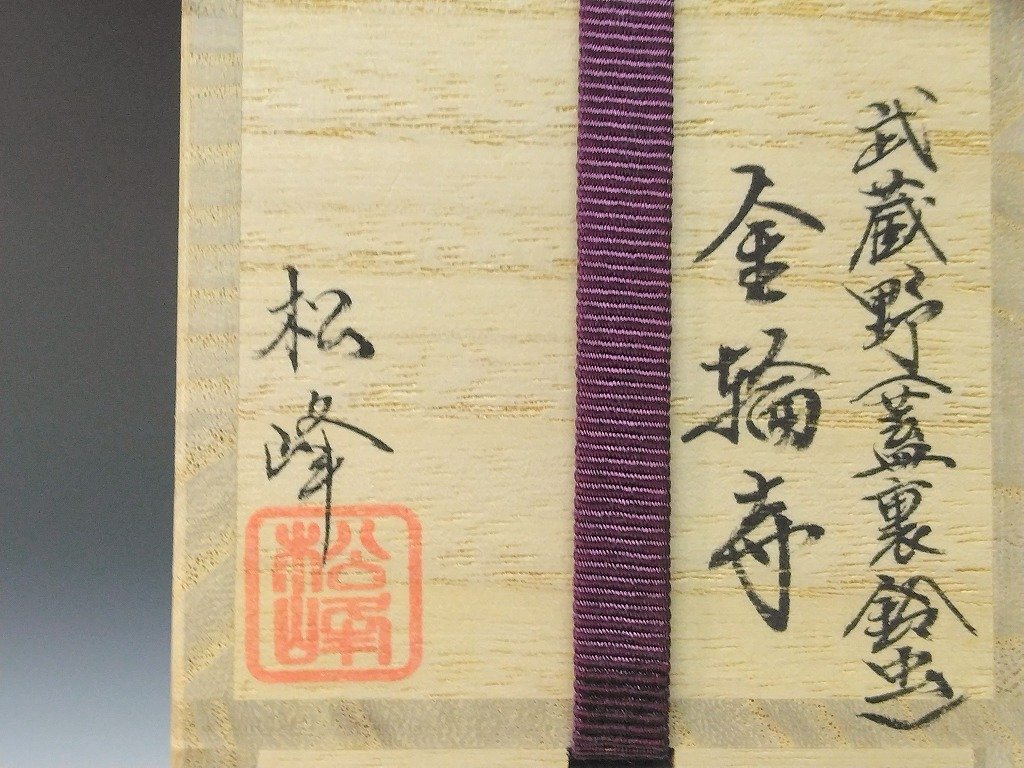 武蔵野蓋裏鈴虫
金輪寺
松峰
松峰